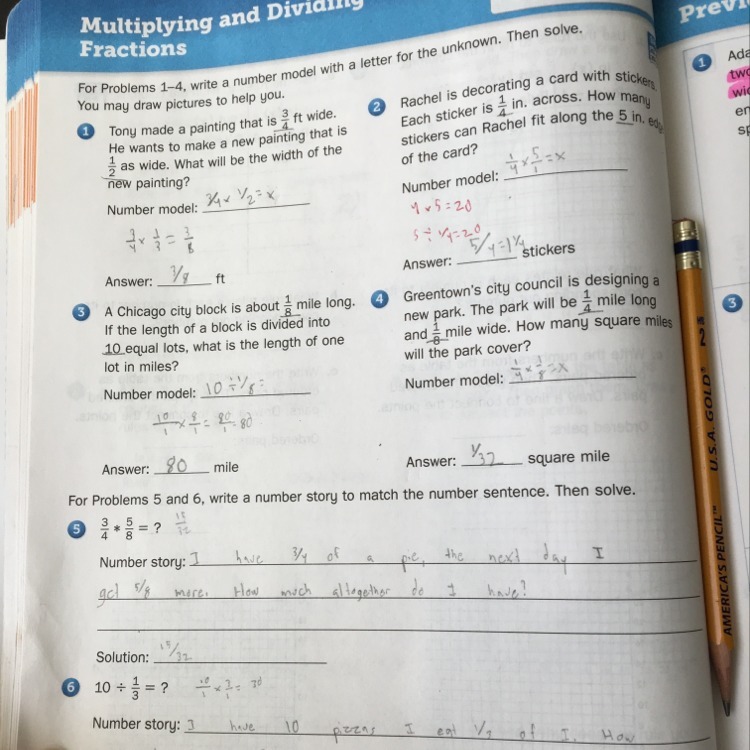 Multiplying and Dividing
Fractions
Previ
For Problems 1–4, write a number model with a letter for the unknown. Then solve.
You may draw pictures to help you.
1 Tony made a painting that is 3/4 ft wide.
He wants to make a new painting that is
1/2 as wide. What will be the width of the
new painting?
Number model: 3/4 x 1/2 = x
3/4 x 1/2 = 3/8
Answer: 3/8 ft
2 Rachel is decorating a card with stickers.
Each sticker is 1/4 in. across. How many
stickers can Rachel fit along the 5 in. edge
of the card?
Number model: 1/4 x 5/1 = x
4 x 5 = 20
5 ÷ 1/4 = 20
Answer: 5/4 = 1 1/4 stickers
3 A Chicago city block is about 1/8 mile long.
If the length of a block is divided into
10 equal lots, what is the length of one
lot in miles?
Number model: 10 ÷ 1/8 =
10/1 x 8/1 = 80/1 = 80
Answer: 80 mile
4 Greentown's city council is designing a
new park. The park will be 1/4 mile long
and 1/8 mile wide. How many square miles
will the park cover?
Number model: 1/4 x 1/8 = x
Answer: 1/32 square mile
For Problems 5 and 6, write a number story to match the number sentence. Then solve.
5 3/4 * 5/8 = ? 15/32
Number story: I have 3/4 of a pie, the next day I
got 5/8 more. How much altogether do I have?
Solution: 15/32
6 10 ÷ 1/3 = ? 10/1 x 3/1 = 30
Number story: I have 10 pizzas I eat 1/3 of I. How
1 Ada
two
wid
en
sp
3
AMERICA'S PENCIL™ U.S.A. GOLD® 2